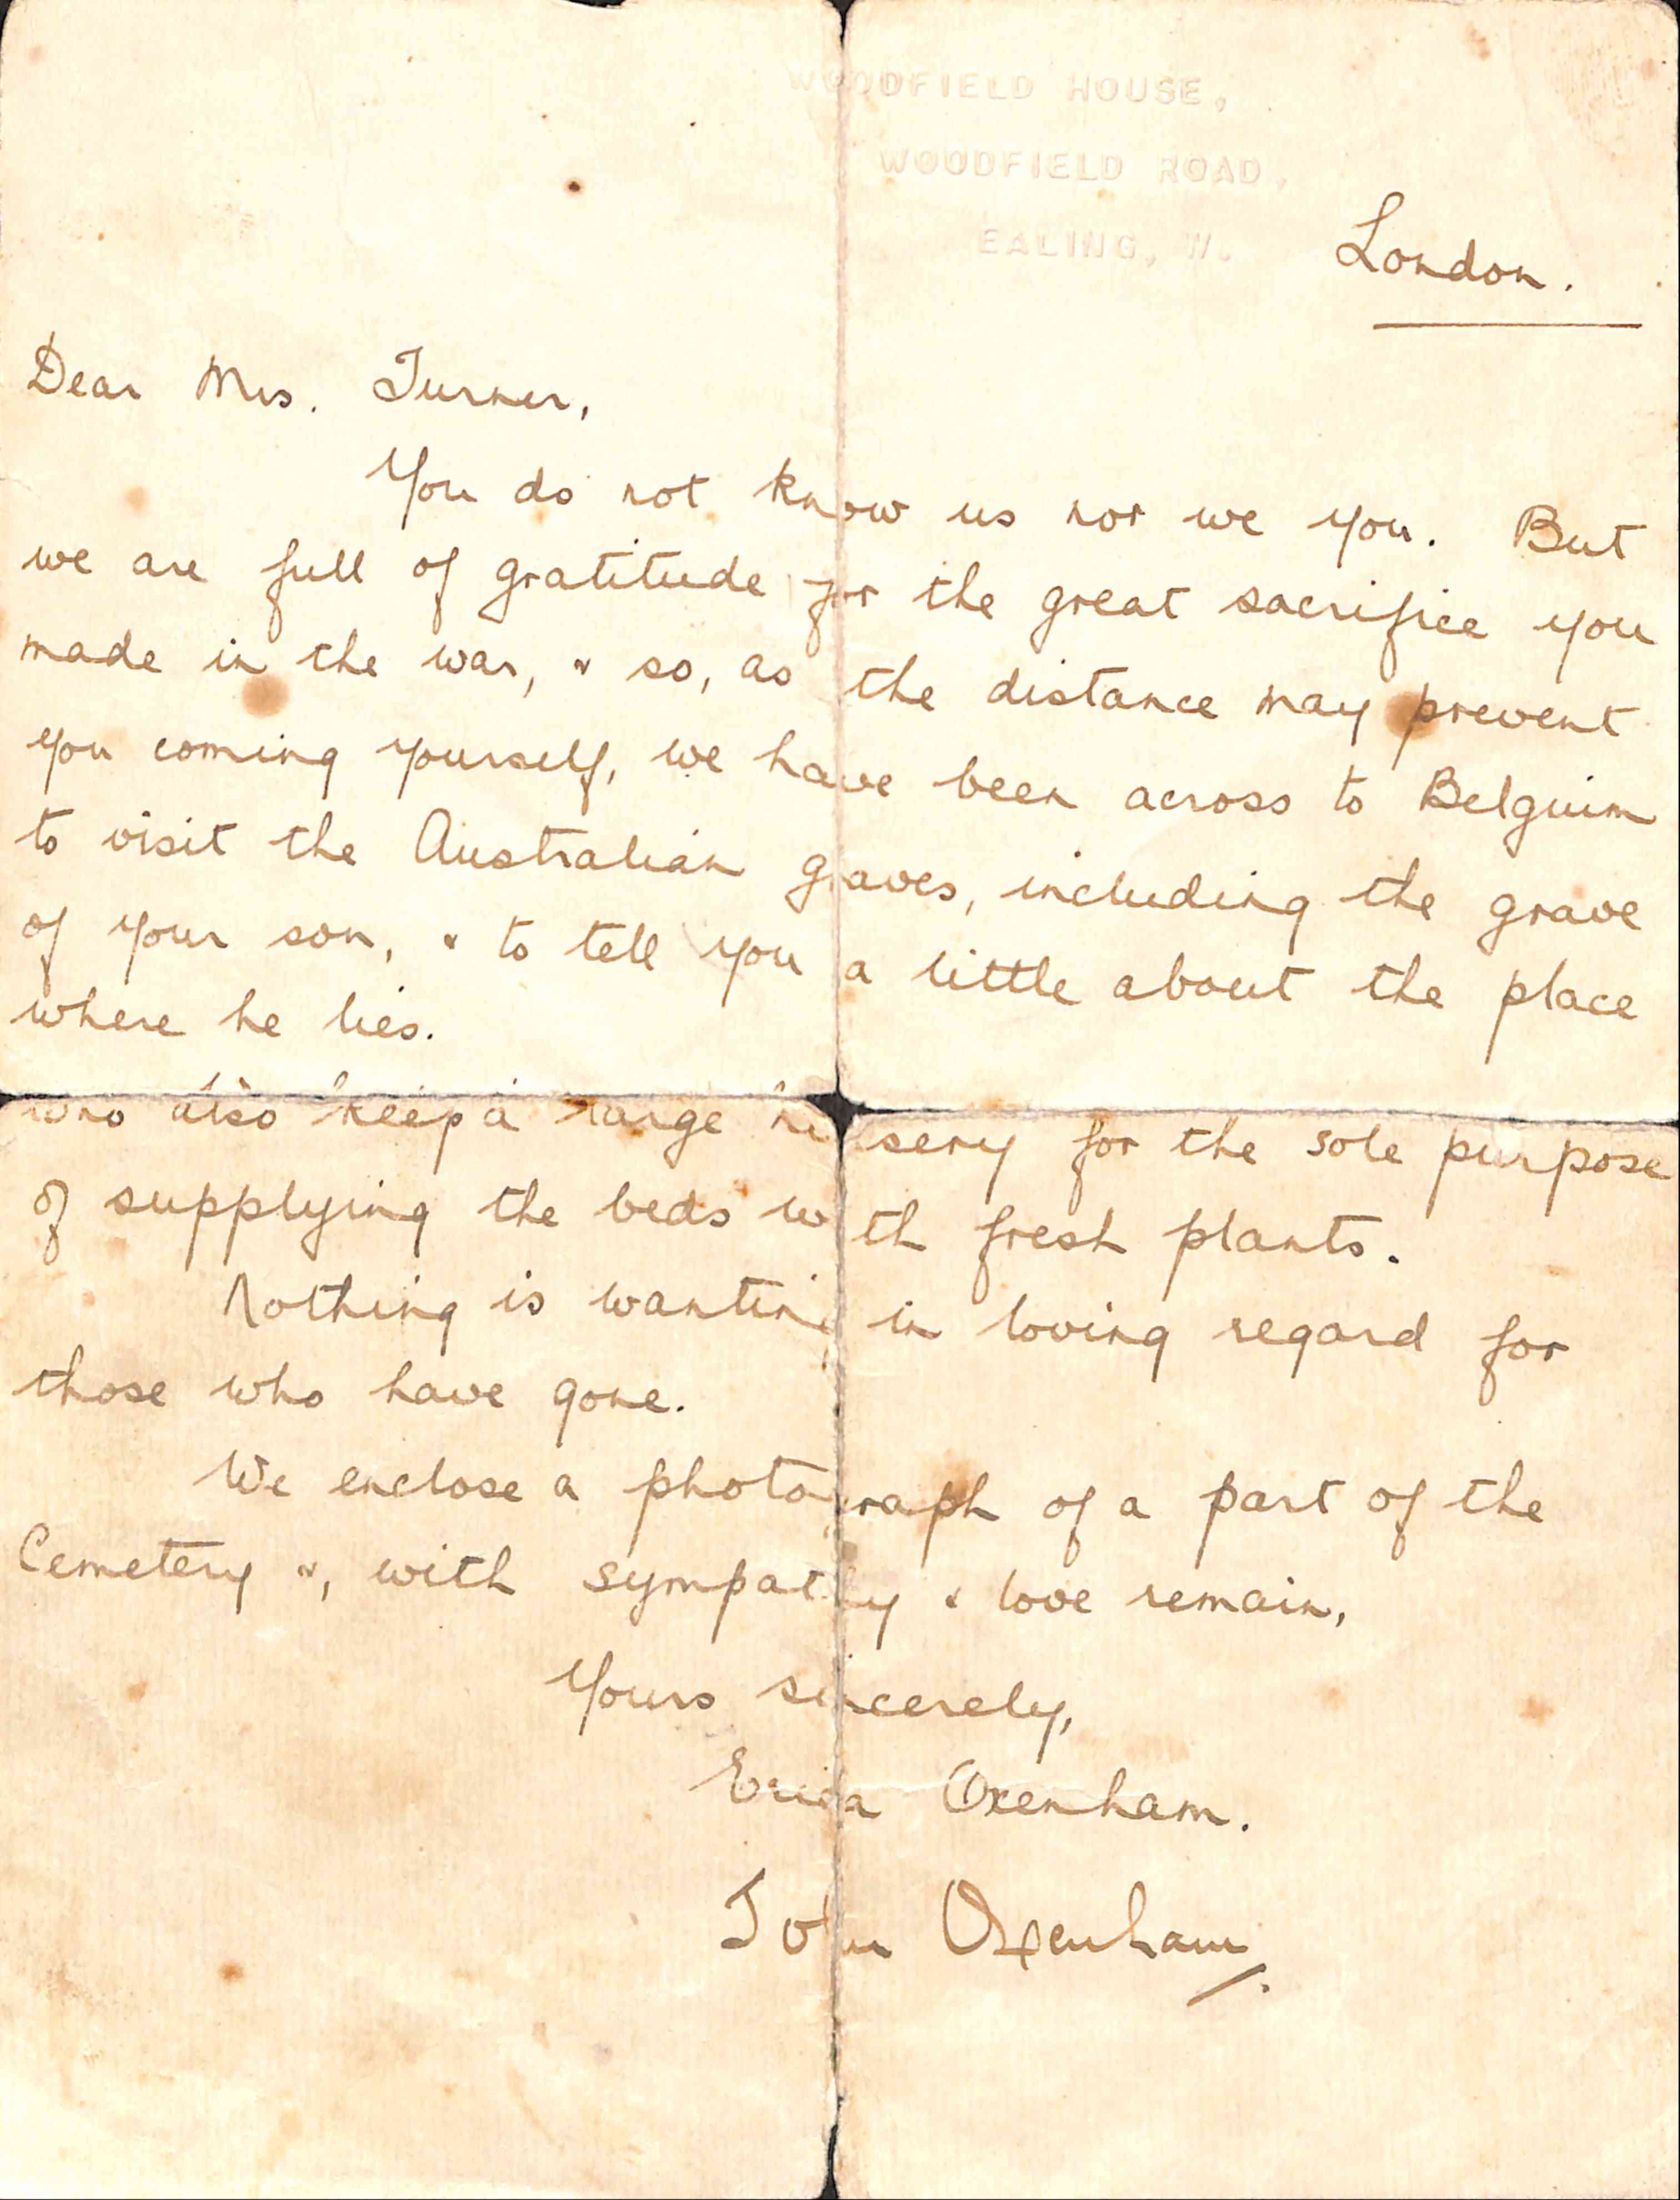 WOODFIELD HOUSE,
WOODFIELD ROAD,
EALING, W.
London.
Dear Mrs. Turner,
You do not know us nor we you. But
we are full of gratitude for the great sacrifice you
made in the war, & so, as the distance may prevent
you coming yourself, we have been across to Belguim
to visit the Australian graves, including the grave
of your son, & to tell you a little about the place
where he lies.
who also keep a large nursery for the sole purpose
of supplying the beds with fresh plants.
Nothing is wanting in loving regard for
those who have gone.
We enclose a photograph of a part of the
Cemetery &, with sympathy & love remain,
Yours sincerely,
Erica Oxenham.
John Oxenham.